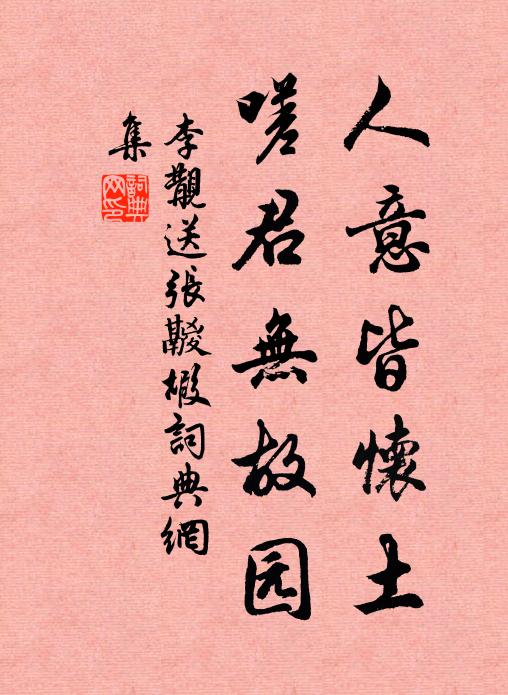 人意皆懷土
嗟君無故园
李覯送張 詞典網
集
詞典
网印